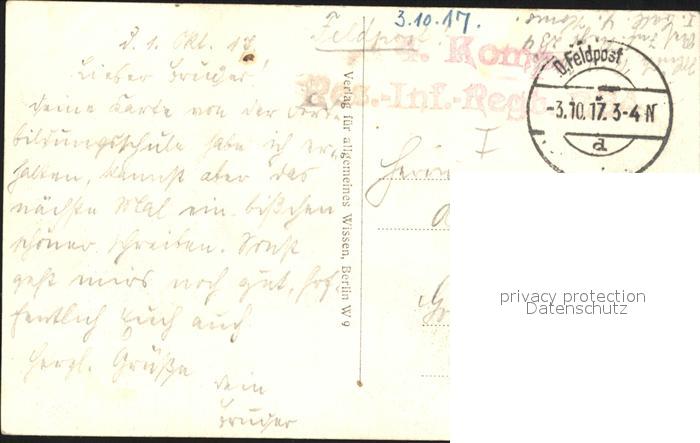 3.10.17.
Feldpost
4. Komp.
Res.-Inf.-Regt.
D. Feldpost
-3.10.17. 3-4 N
a
D. 1. Okt. 17.
Lieber Bruder!
Deine Karte von der
bildungsschule habe ich er-
halten, kannst aber das
nächste Mal ein bißchen
schöner schreiben. Sonst
geht mirs noch gut, hof-
fentlich Euch auch
Herzl. Grüße
Dein
Bruder
Verlag für allgemeines Wissen, Berlin W 9
I
Herrn
privacy protection
Datenschutz